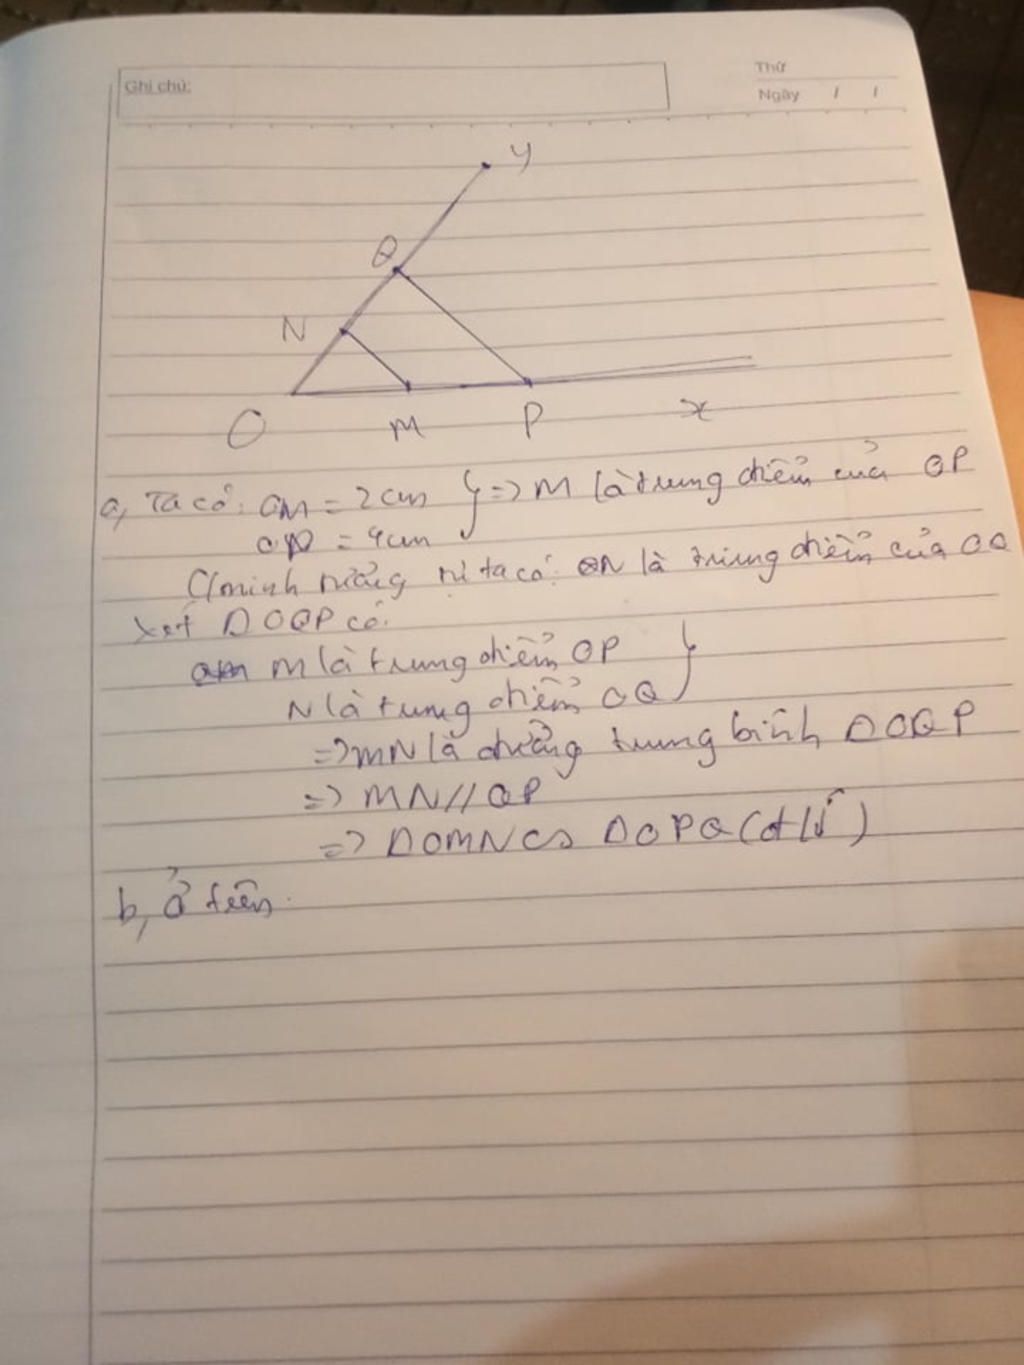 Ghi chú:
Thứ
Ngày / /
y
Q
N
O M P x
a, Ta có: OM = 2cm } => M là trung điểm của OP
OP = 4cm
C/minh tương tự ta có: N là trung điểm của OQ
Xét ΔOQP có:
M là trung điểm OP }
N là trung điểm OQ
=> MN là đường trung bình ΔOQP
=> MN // QP
=> ΔOMN ∽ ΔOPQ (đ/lí)
b, Ở trên.